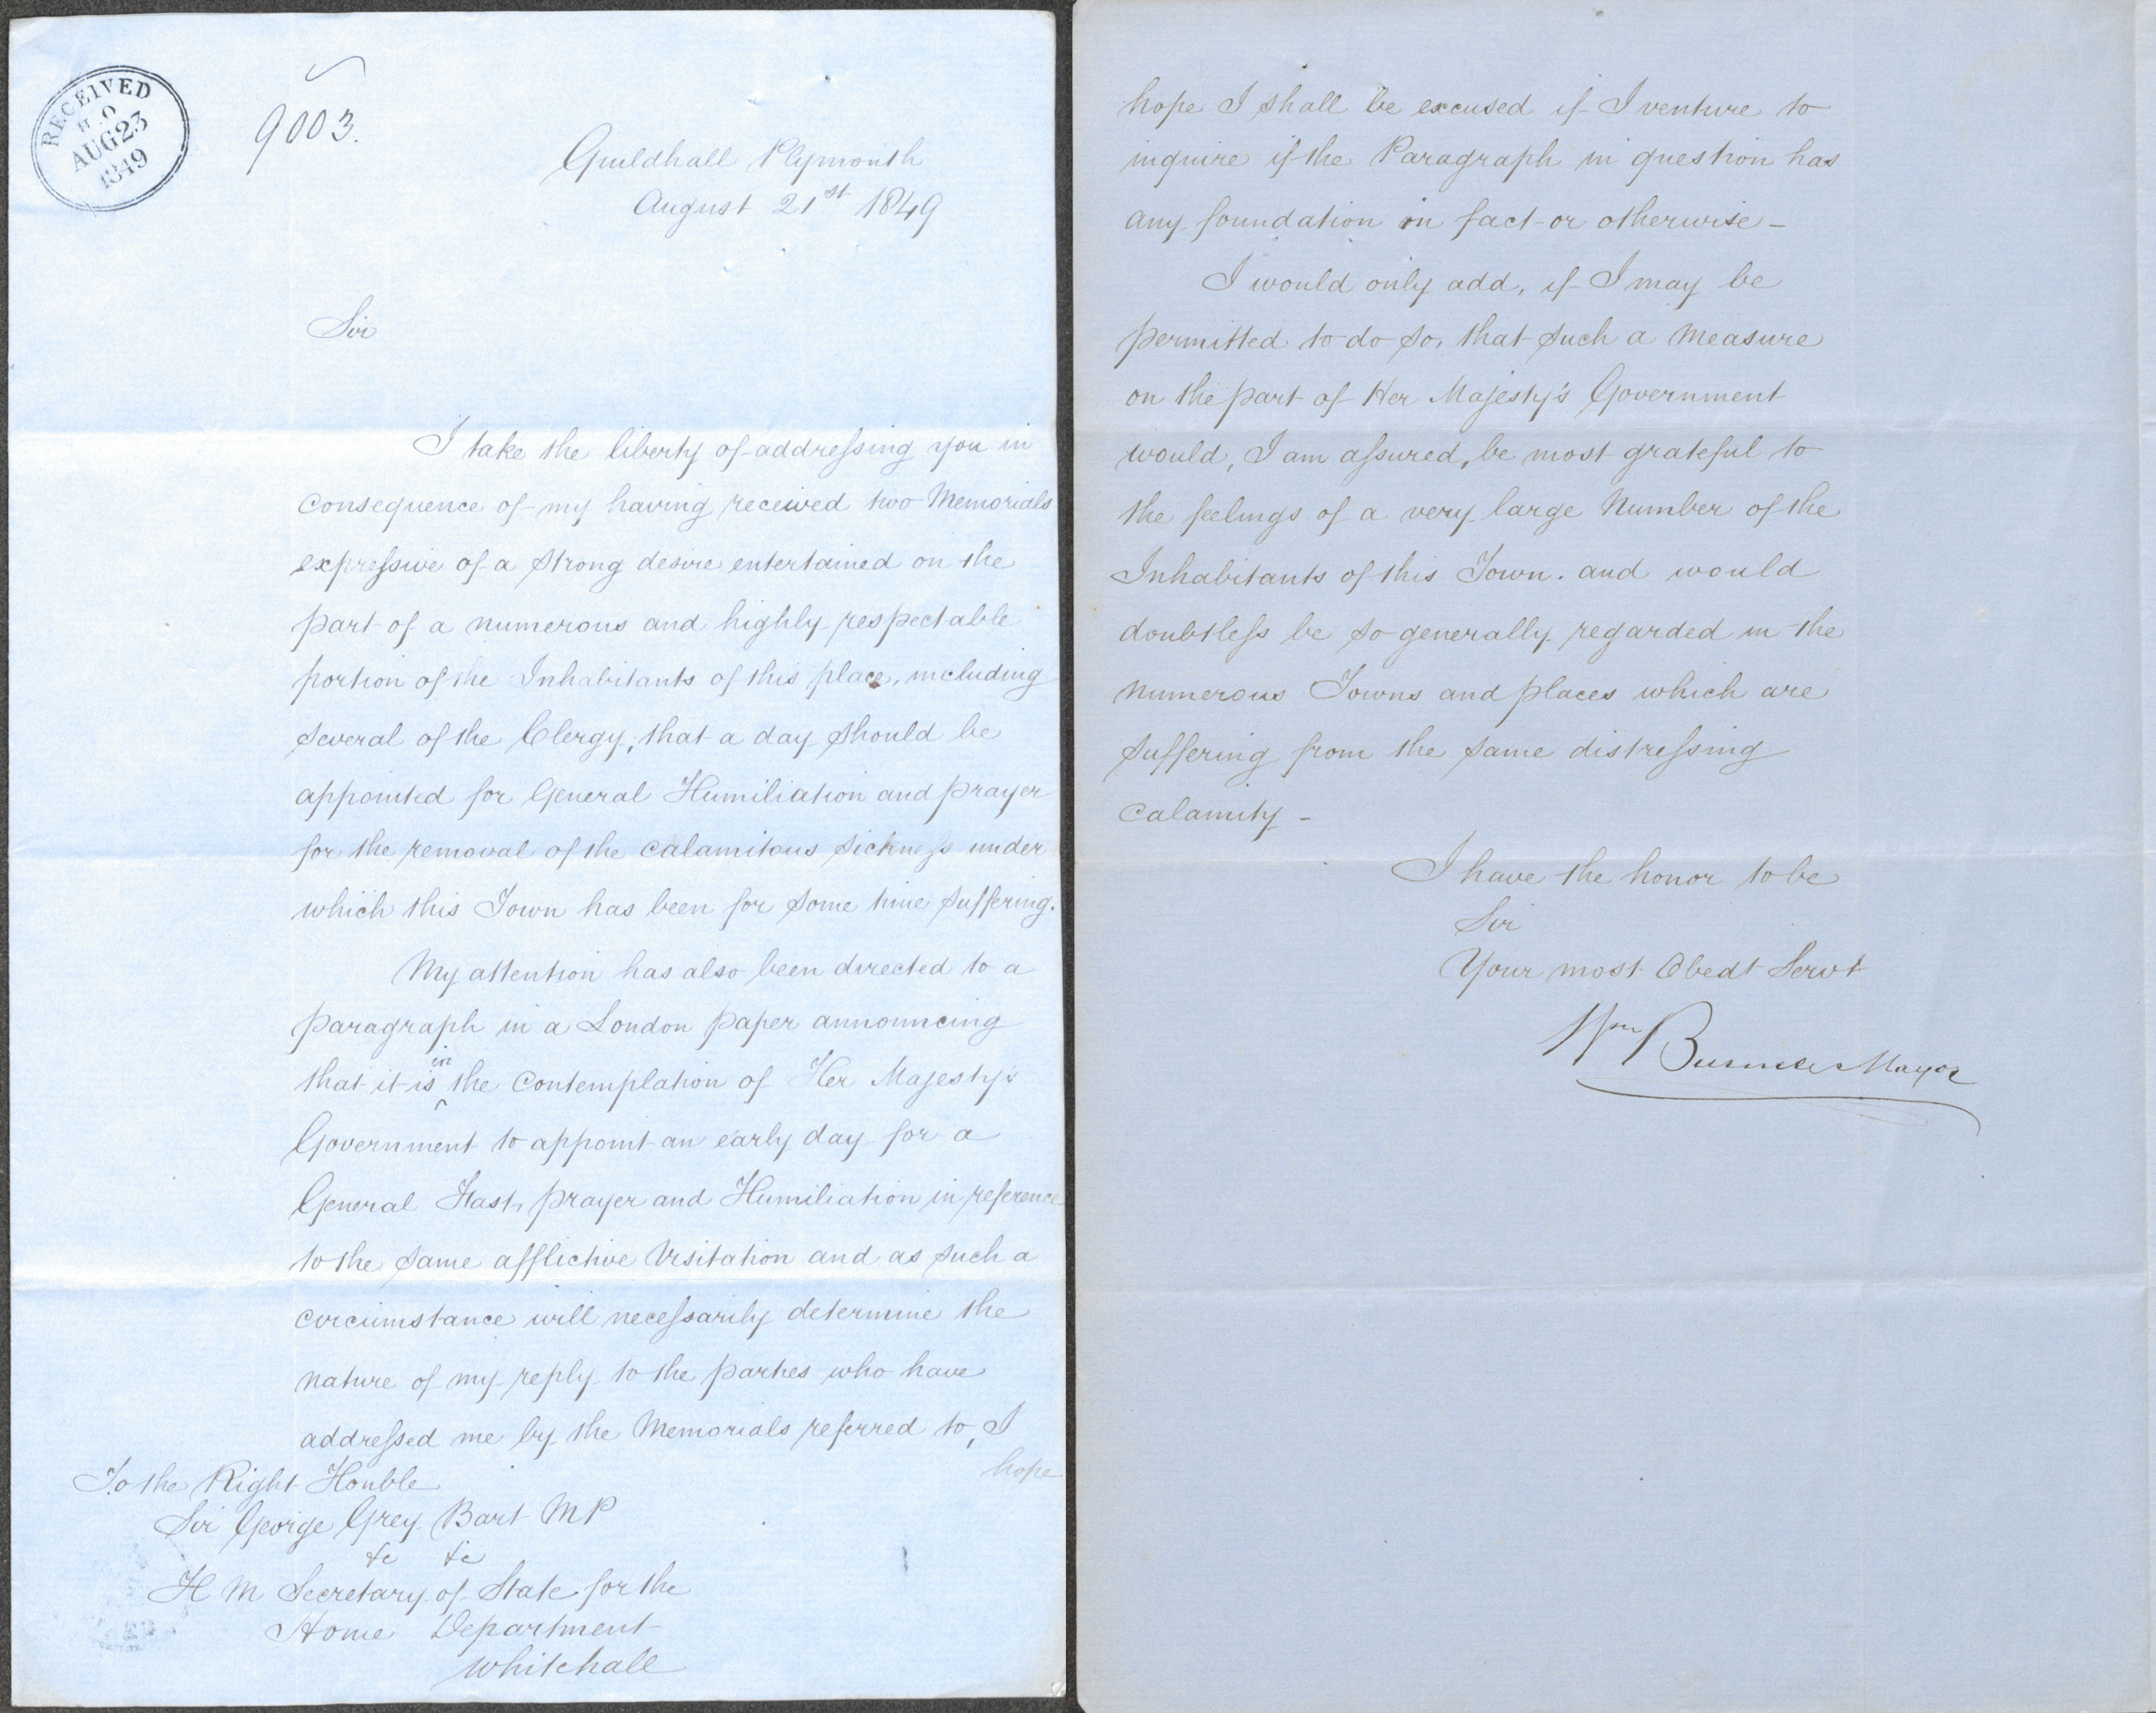 RECEIVED
H.O
AUG 23
1849
9003.
Guildhall Plymouth
August 21st 1849
Sir
I take the liberty of addressing you in
consequence of my having received two Memorials
expressive of a strong desire entertained on the
part of a numerous and highly respectable
portion of the Inhabitants of this place, including
several of the Clergy; that a day should be
appointed for General Humiliation and prayer
for the removal of the calamitous sickness under
which this Town has been for some time suffering.
My attention has also been directed to a
paragraph in a London paper announcing
that it is in the contemplation of Her Majesty's
Government to appoint an early day for a
General Fast, prayer and Humiliation in reference
to the same afflictive Visitation and as such a
circumstance will necessarily determine the
nature of my reply to the parties who have
addressed me by the Memorials referred to, I
hope
To the Right Honble
Sir George Grey Bart MP
&c &c
H M Secretary of State for the
Home Department
Whitehall
hope I shall be excused if I venture to
inquire if the Paragraph in question has
any foundation in fact or otherwise -
I would only add, if I may be
permitted to do so, that such a measure
on the part of Her Majesty's Government
would, I am assured, be most grateful to
the feelings of a very large Number of the
Inhabitants of this Town. and would
doubtless be so generally regarded in the
numerous Towns and places which are
suffering from the same distressing
calamity -
I have the honor to be
Sir
Your most Obedt Servt
Wm Mayor